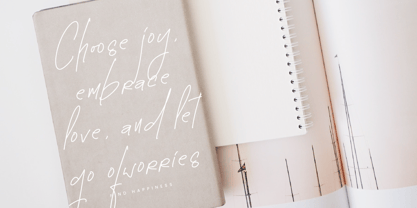 Choose joy,
embrace
love, and let
go of worries
AND HAPPINESS